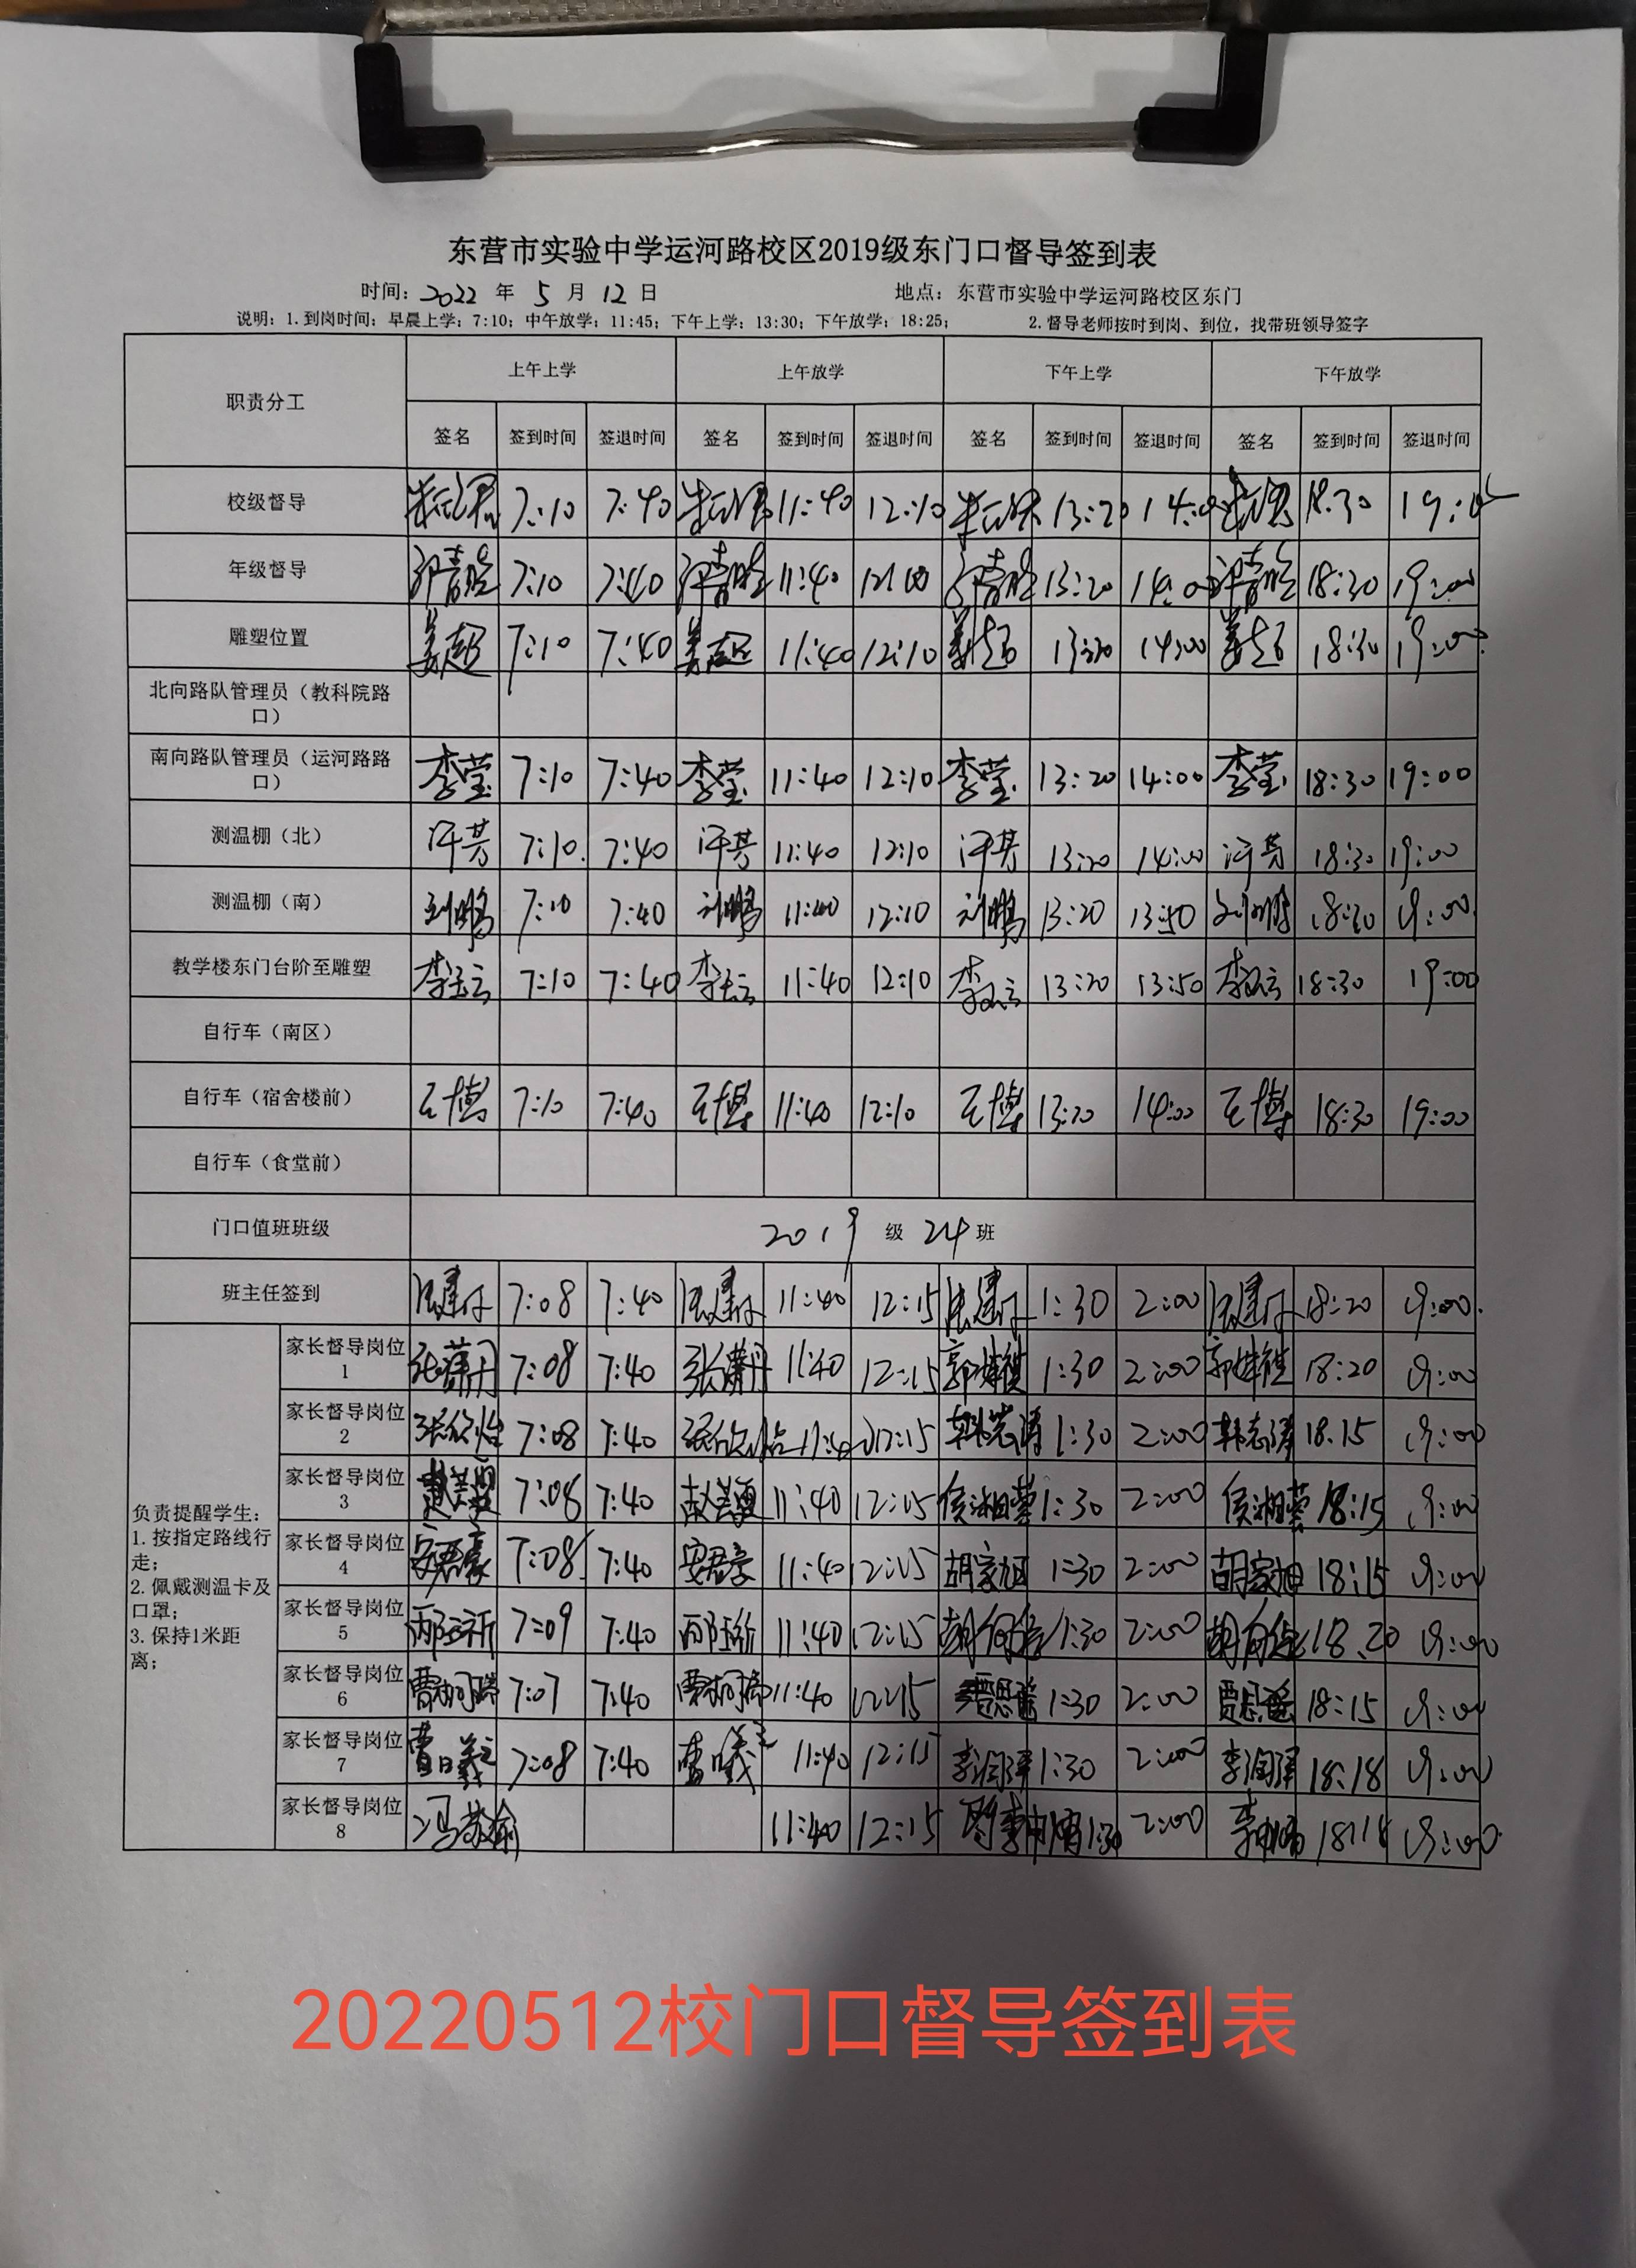 东营市实验中学运河路校区2019级东门口督导签到表
时间：2022 年 5 月 12 日 地点：东营市实验中学运河路校区东门
说明：1.到岗时间：早晨上学：7:10；中午放学：11:45；下午上学：13:30；下午放学：18:25； 2.督导老师按时到岗、到位，找带班领导签字
职责分工 上午上学 上午放学 下午上学 下午放学
签名 签到时间 签退时间 签名 签到时间 签退时间 签名 签到时间 签退时间 签名 签到时间 签退时间
校级督导 7:10 7:40 11:40 12:10 13:20 18:30
年级督导 7:10 7:40 11:40 13:20 14:00 18:30 19:00
雕塑位置 姜超 7:10 7:40 姜超 11:40 12:10 姜超 13:20 14:00 姜超 18:30 19:00
北向路队管理员（教科院路
口）
南向路队管理员（运河路路
口） 李莹 7:10 7:40 李莹 11:40 12:10 李莹 13:20 14:00 李莹 18:30 19:00
测温棚（北） 7:10 7:40 11:40 12:10 13:20 14:00 18:30 19:00
测温棚（南） 刘鹏 7:10 7:40 刘鹏 11:40 12:10 刘鹏 13:20 13:50 刘鹏 18:30 19:00
教学楼东门台阶至雕塑 李玉云 7:10 7:40 李玉云 11:40 12:10 李玉云 13:20 13:50 李玉云 18:30 19:00
自行车（南区）
自行车（宿舍楼前） 王博 7:10 7:40 王博 11:40 12:10 王博 13:20 14:00 王博 18:30 19:00
自行车（食堂前）
门口值班班级 2019 级 24 班
班主任签到 7:08 7:40 11:40 12:15 1:30 2:00 18:20 19:00
负责提醒学生：
1.按指定路线行
走；
2.佩戴测温卡及
口罩；
3.保持1米距
离；
家长督导岗位
1 7:08 7:40 11:40 12:15 1:30 2:00 18:20 19:00
家长督导岗位
2 张欣怡 7:08 7:40 张欣怡 11:40 12:15 韩志涛 1:30 2:00 韩志涛 18:15 19:00
家长督导岗位
3 7:08 7:40 11:40 12:15 侯湘芸 1:30 2:00 侯湘芸 18:15 19:00
家长督导岗位
4 安君豪 7:08 7:40 安君豪 11:40 12:15 胡家旭 1:30 2:00 胡家旭 18:15 19:00
家长督导岗位
5 7:09 7:40 11:40 12:15 1:30 2:00 18:20 19:00
家长督导岗位
6 7:07 7:40 11:40 12:15 1:30 2:00 18:15 19:00
家长督导岗位
7 7:08 7:40 11:40 12:15 李润泽 1:30 2:00 李润泽 18:18 19:00
家长督导岗位
8 冯敬瑜 11:40 12:15 1:30 2:00 18:18 19:00
20220512校门口督导签到表